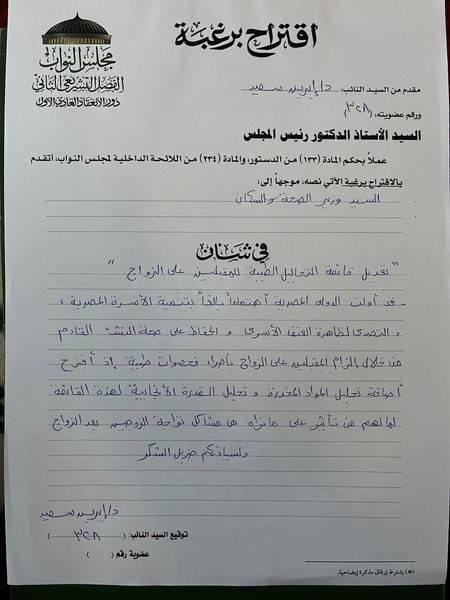 مجلس النواب
الفصل التشريعي الثاني
دور الانعقاد العادي الأول
اقتراح برغبة
مقدم من السيد النائب: د/إيرين سعيد
ورقم عضويته: (٣٢٨)
السيد الأستاذ الدكتور رئيس المجلس
عملاً بحكم المادة (١٣٣) من الدستور، والمادة (٢٣٤) من اللائحة الداخلية لمجلس النواب، أتقدم
بالاقتراح برغبة الآتي نصه، موجهاً إلى:
السيد وزير الصحة والسكان
في شأن
"تعديل قائمة التحاليل الطبية للمقبلين على الزواج"
- قد أولت الدولة المصرية اهتماماً بالغاً بتنمية الأسرة المصرية،
و التصدى لظاهرة العنف الأسرى و الحفاظ على صحة النشئ القادم
من خلال إلزام المقبلين على الزواج بأجراء فحوصات طبية إذ أقترح
أضافة تحليل المواد المخدرة و تحليل القدرة الأنجابية لهذة القائمة
لما لهم من تأثير على ما نراه من مشاكل تواجة الزوجين بعد الزواج
ولسيادتكم جزيل الشكر
د/إيرين سعيد
توقيع السيد النائب: ( ٣٢٨ )
عضوية رقم ( )
(*) بشترط إرفاق مذكرة إيضاحية.